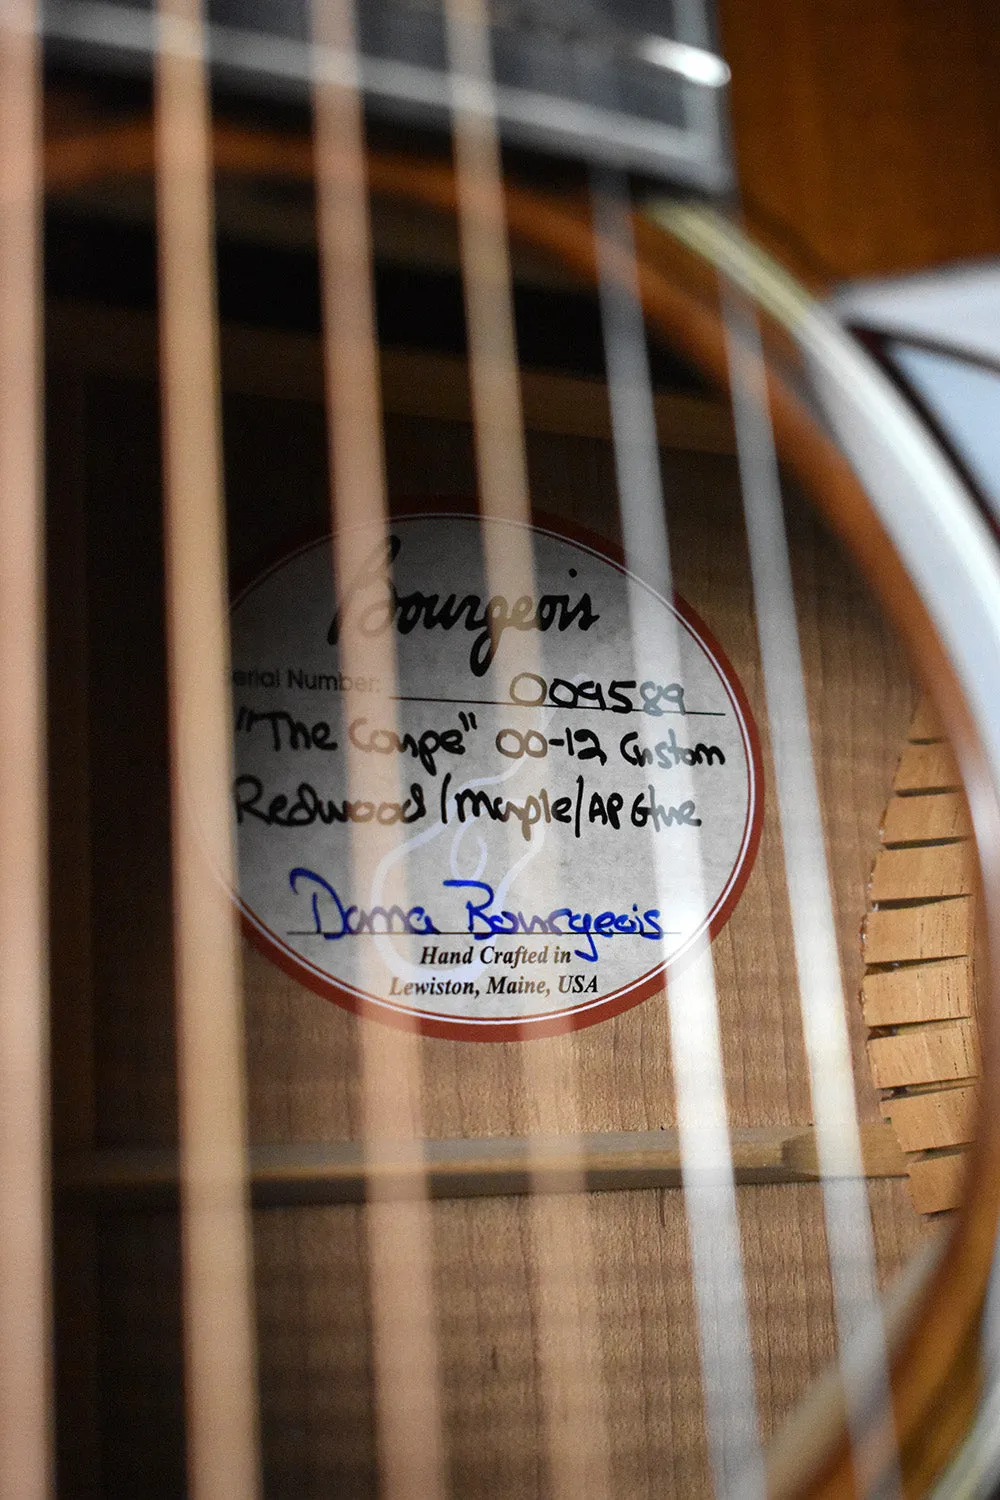 Bourgeois
Serial Number: 009589
"The Coupe" 00-12 Custom
Redwood/Maple/AP Glue
Dana Bourgeois
Hand Crafted in
Lewiston, Maine, USA